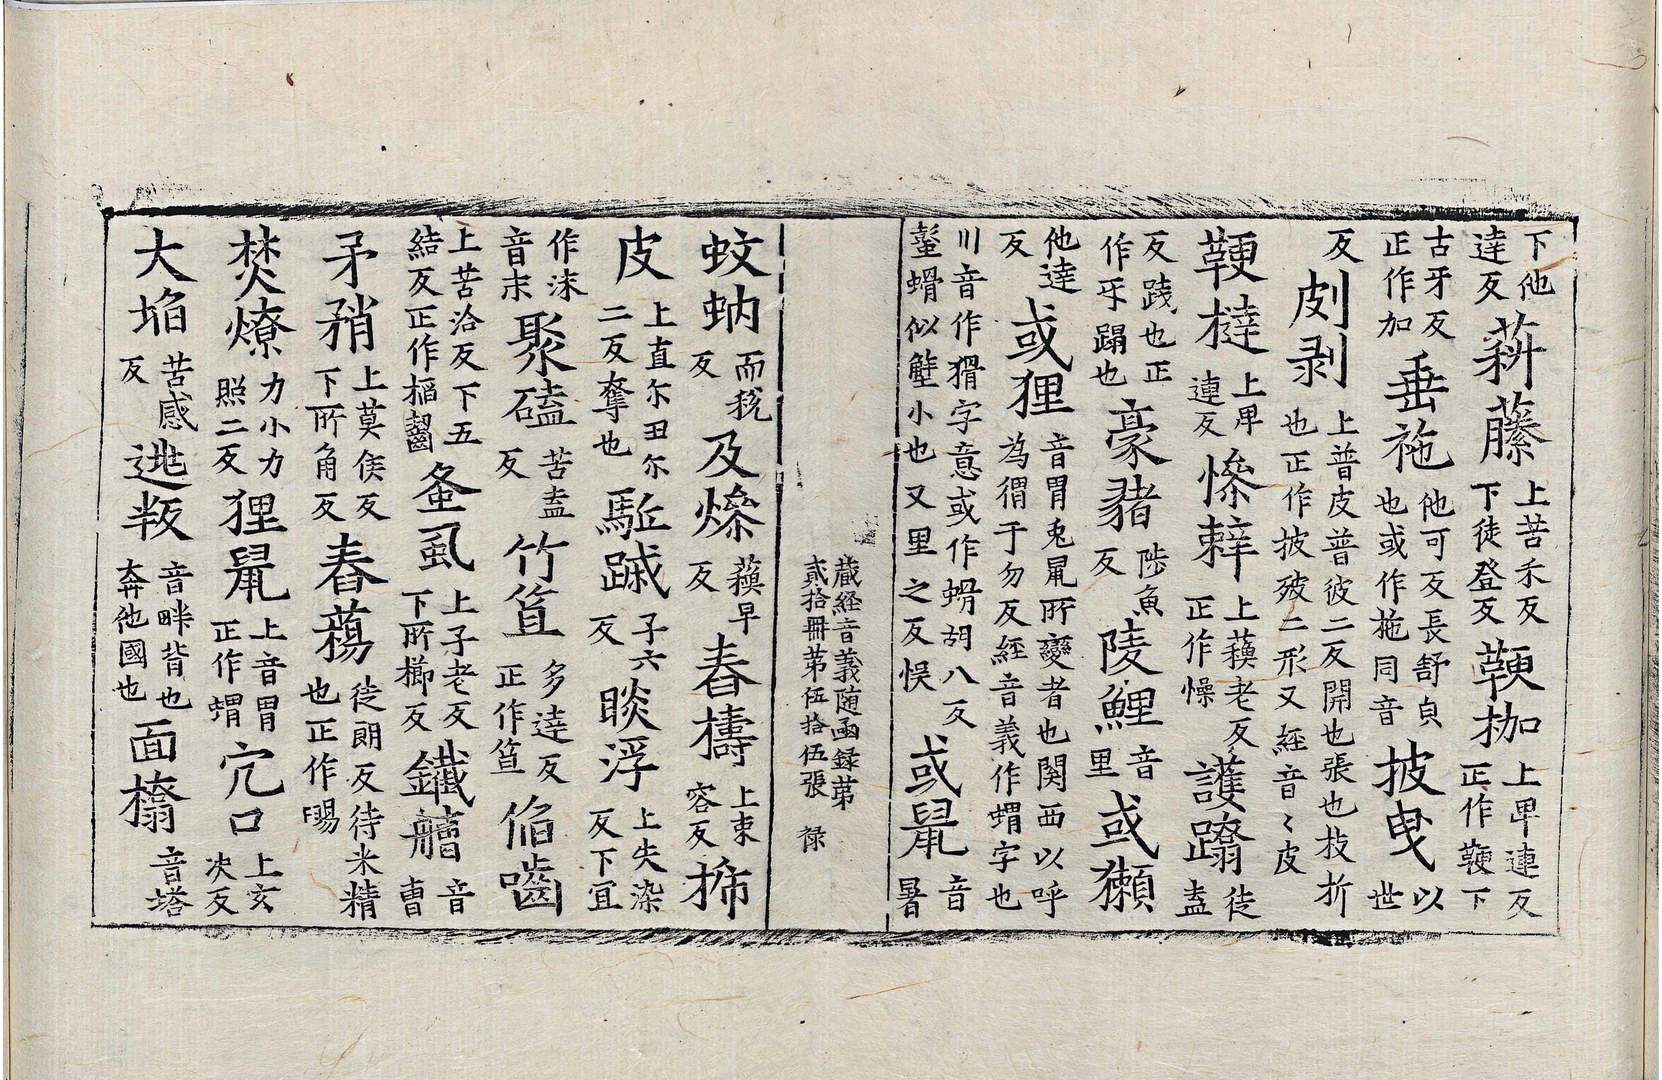 下他達反 𦼮藤 上苦禾反下徒登反 鞕枷 上卑連反正作鞭下
古牙反正作加 垂袘 他可反長舒皃也或作拖同音 披曳 以世
反 皮剥 上普皮普彼二反開也張也枝折也正作披破二形又經音〻皮
鞕撻 上卑連反 慘辢 上蘓老反正作懆 護蹹 徒盍
反踐也正作𤘅蹋也 豪豬 陟魚反 陵鯉 音里 或獺
他達反 或狸 音胃兎鼠所變者也関西以呼為猬于勿反經音義作蝟字也
川音作猾字意或作螖胡八反蟚螖似蟹小也又里之反悮 或鼠 音暑
藏経音義随函録第
貳拾冊第伍拾伍張 禄
蚊蚋 而稅反 及燥 蘓早反 舂擣 上束容反 㧊
皮 上直尔丑尔二反奪也 駈蹙 子六反 睒浮 上失染反下冝
作涑音末 聚磕 苦盍反 竹笪 多達反正作笪 㑽嚙
上苦洽反下五結反正作㨂齧 蚤虱 上子老反下所櫛反 鐵艚 音曹
矛矟 上莫侯反下所角反 舂蕩 徒朗反待米精也正作𣉘
焚燎 力小力照二反 狸鼠 上音胃正作蝟 穴口 上玄決反
大埳 苦感反 逃叛 音畔背也奔他國也 面㯓 音塔